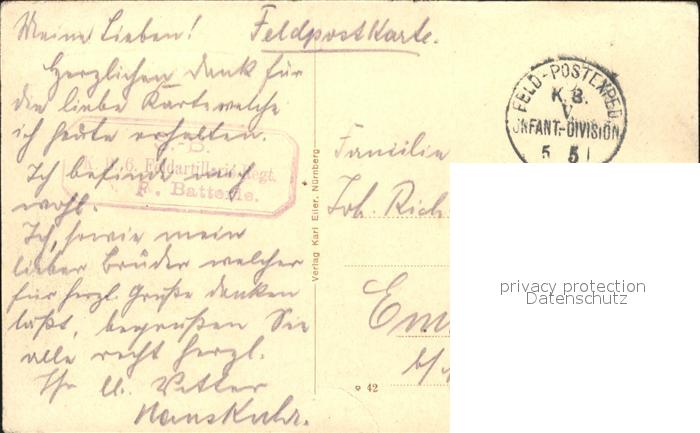 Meine Lieben! Feldpostkarte.
Herzlichen Dank für
die liebe Karte welche
ich heute erhalten.
Ich befinde mich
wohl.
Ich, sowie mein
lieber Bruder welcher
für herzl. Grüße danken
läßt, begrüßen Sie
alle recht herzl.
Ihr Vetter
Hans
K. B. 6. Feldartillerie-Regt.
F. Batterie.
Verlag Karl Eller, Nürnberg
42
FELD-POSTEXPED.
K. B.
V.
INFANT.-DIVISION
5 5
Familie
Joh. Rich
Em
b/
privacy protection
Datenschutz